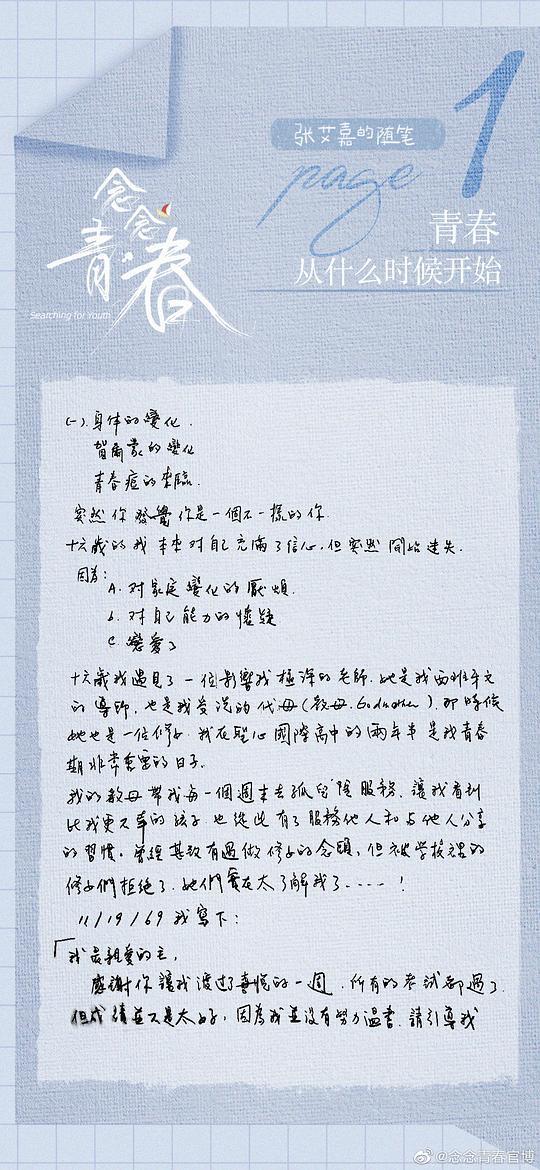 张艾嘉的随笔
page 1
念念
青春
Searching for Youth
青春
从什么时候开始
(一).身体的變化.
賀爾蒙的變化
青春痘的來臨.
突然你發覺你是一個不一樣的你.
十六歲的我本來對自己充滿了信心,但突然開始迷失.
因為:
A. 对家庭變化的厭煩.
b. 对自己能力的懷疑
C. 戀愛了
十六歲我遇見了一位影響我極深的老師.她是我西班牙文
的導師,也是我受洗的代母(教母.Godmother).那時候
她也是一位修女.我在聖心國際高中的兩年半是我青春
期非常重要的日子.
我的教母带我每一個週末去孤兒院服務.讓我看到
比我更不幸的孩子也從此有了服務他人和与他人分享
的習慣.曾經甚致有過做修女的念頭,但被学校裡的
修女們拒絕了.她們實在太了解我了.....!
11/19/69 我寫下:
「我最親愛的主,
感謝你讓我渡过了喜悦的一週.所有的考試都過了
但成績並不是太好,因為我並沒有努力溫書.請引導我
@念念青春官博